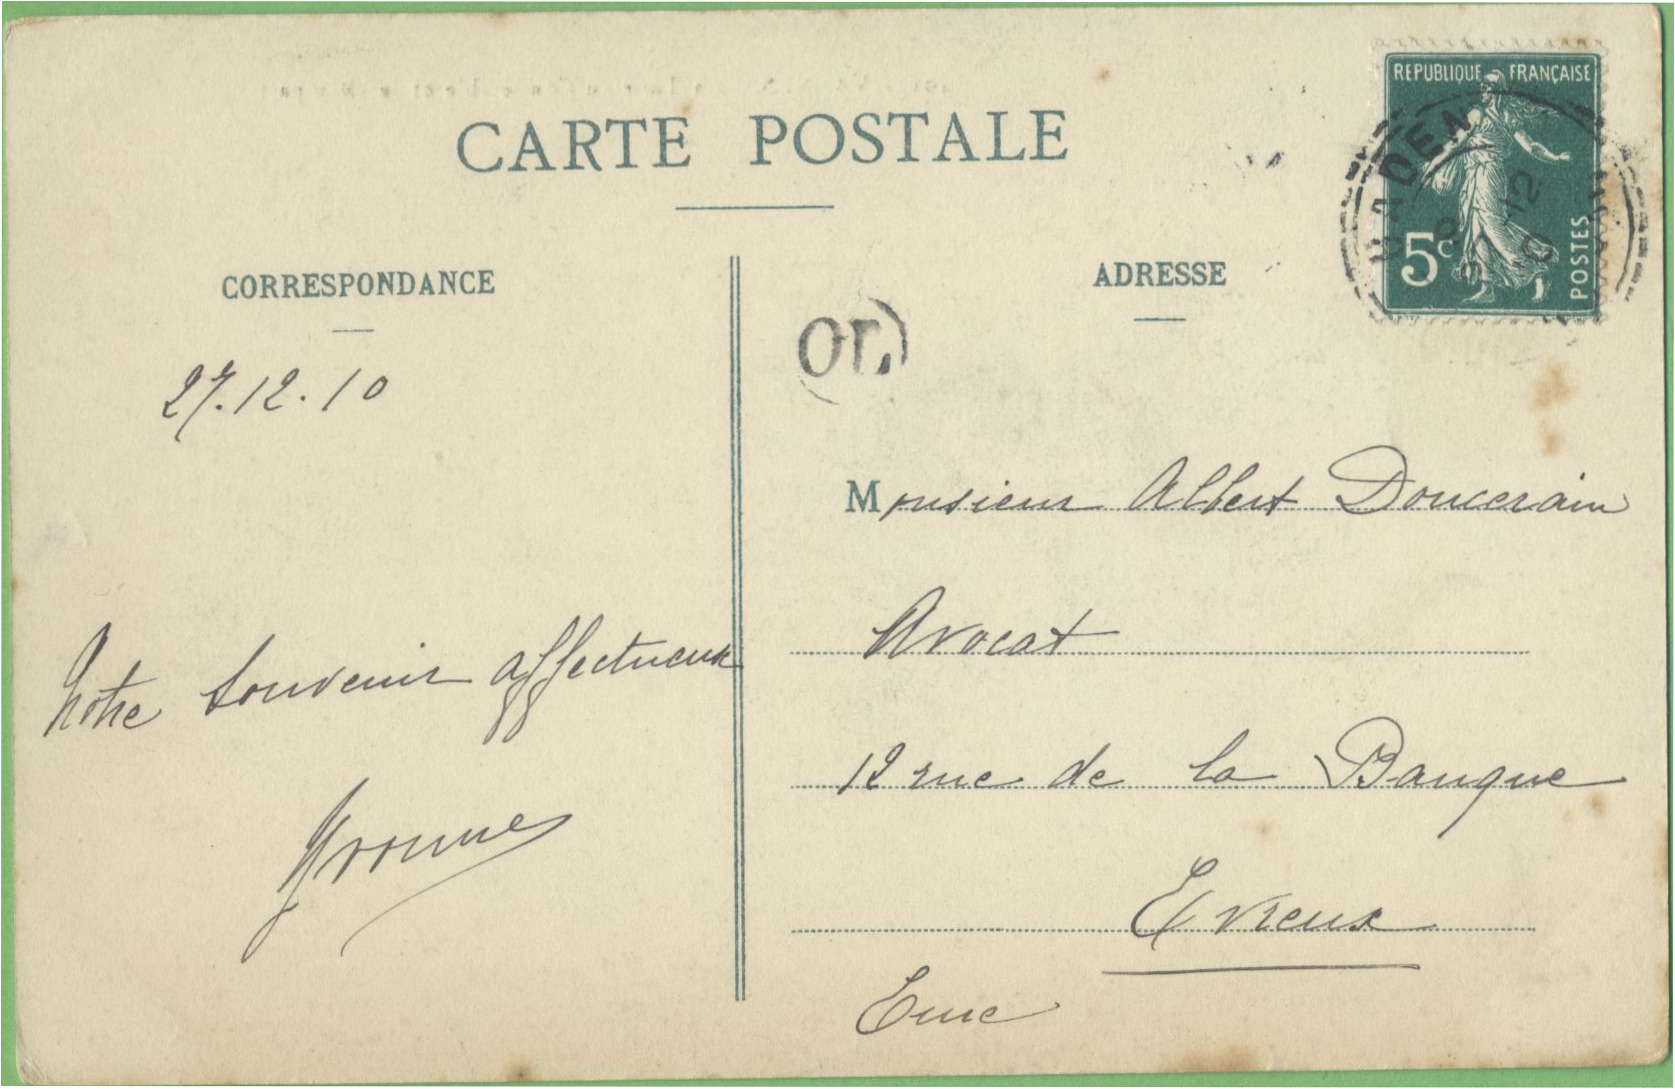 CARTE POSTALE
CORRESPONDANCE
27.12.10
Notre souvenir affectueux
Yvonne
ADRESSE
REPUBLIQUE FRANÇAISE
5c
POSTES
OR
Monsieur Albert Doucerain
Avocat
12 rue de la Banque
Evreux
Eure